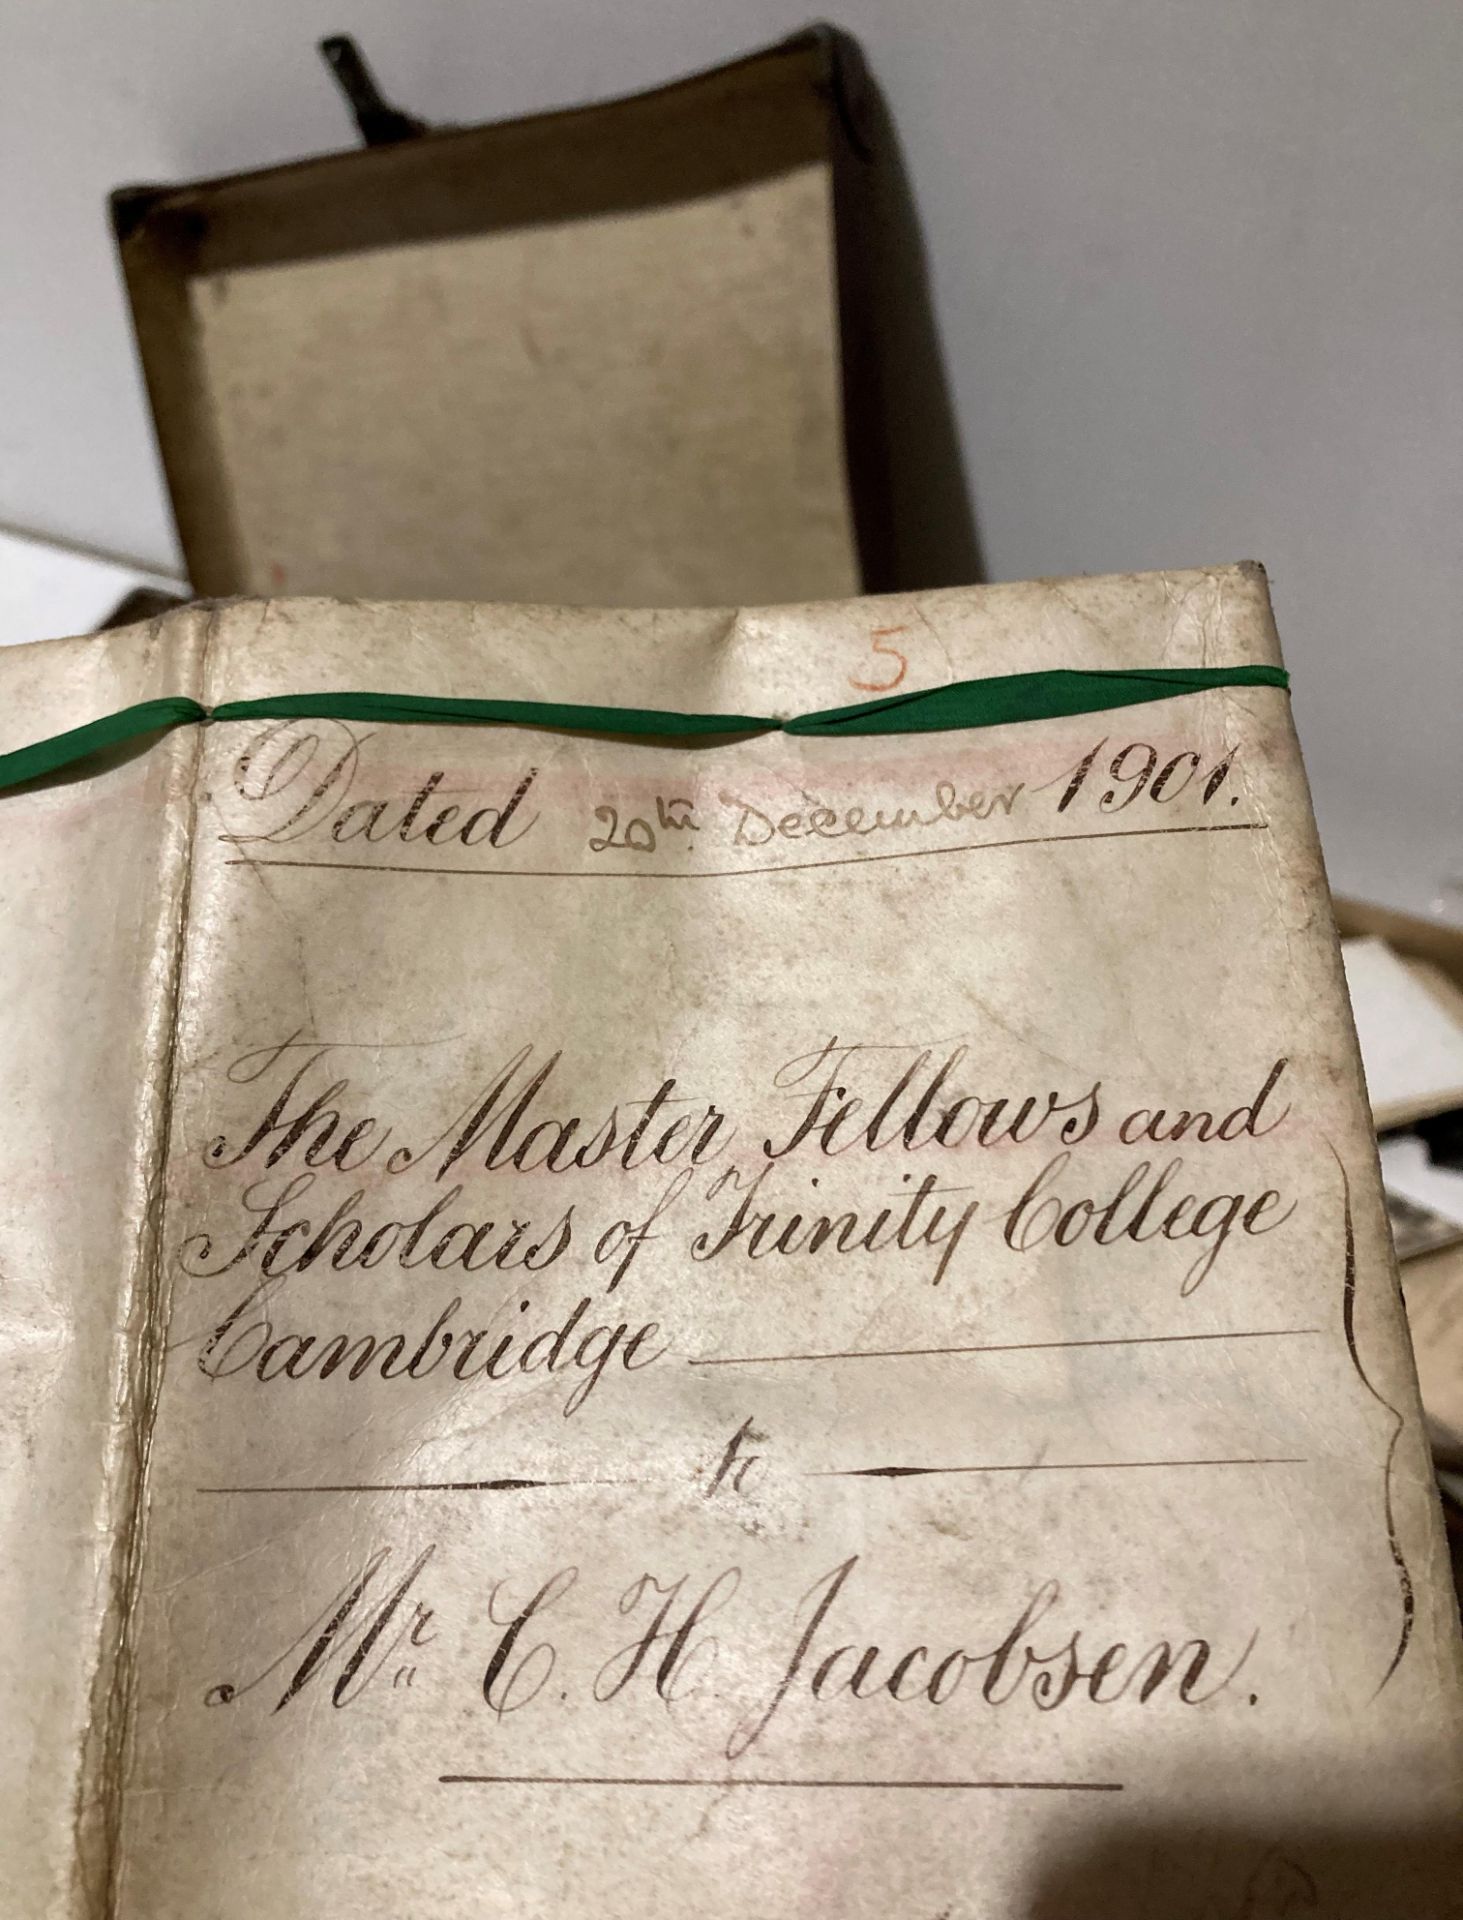 5
Dated 20th December 1901.
The Master Fellows and
Scholars of Trinity College
Cambridge
to
Mr. C. H. Jacobsen.